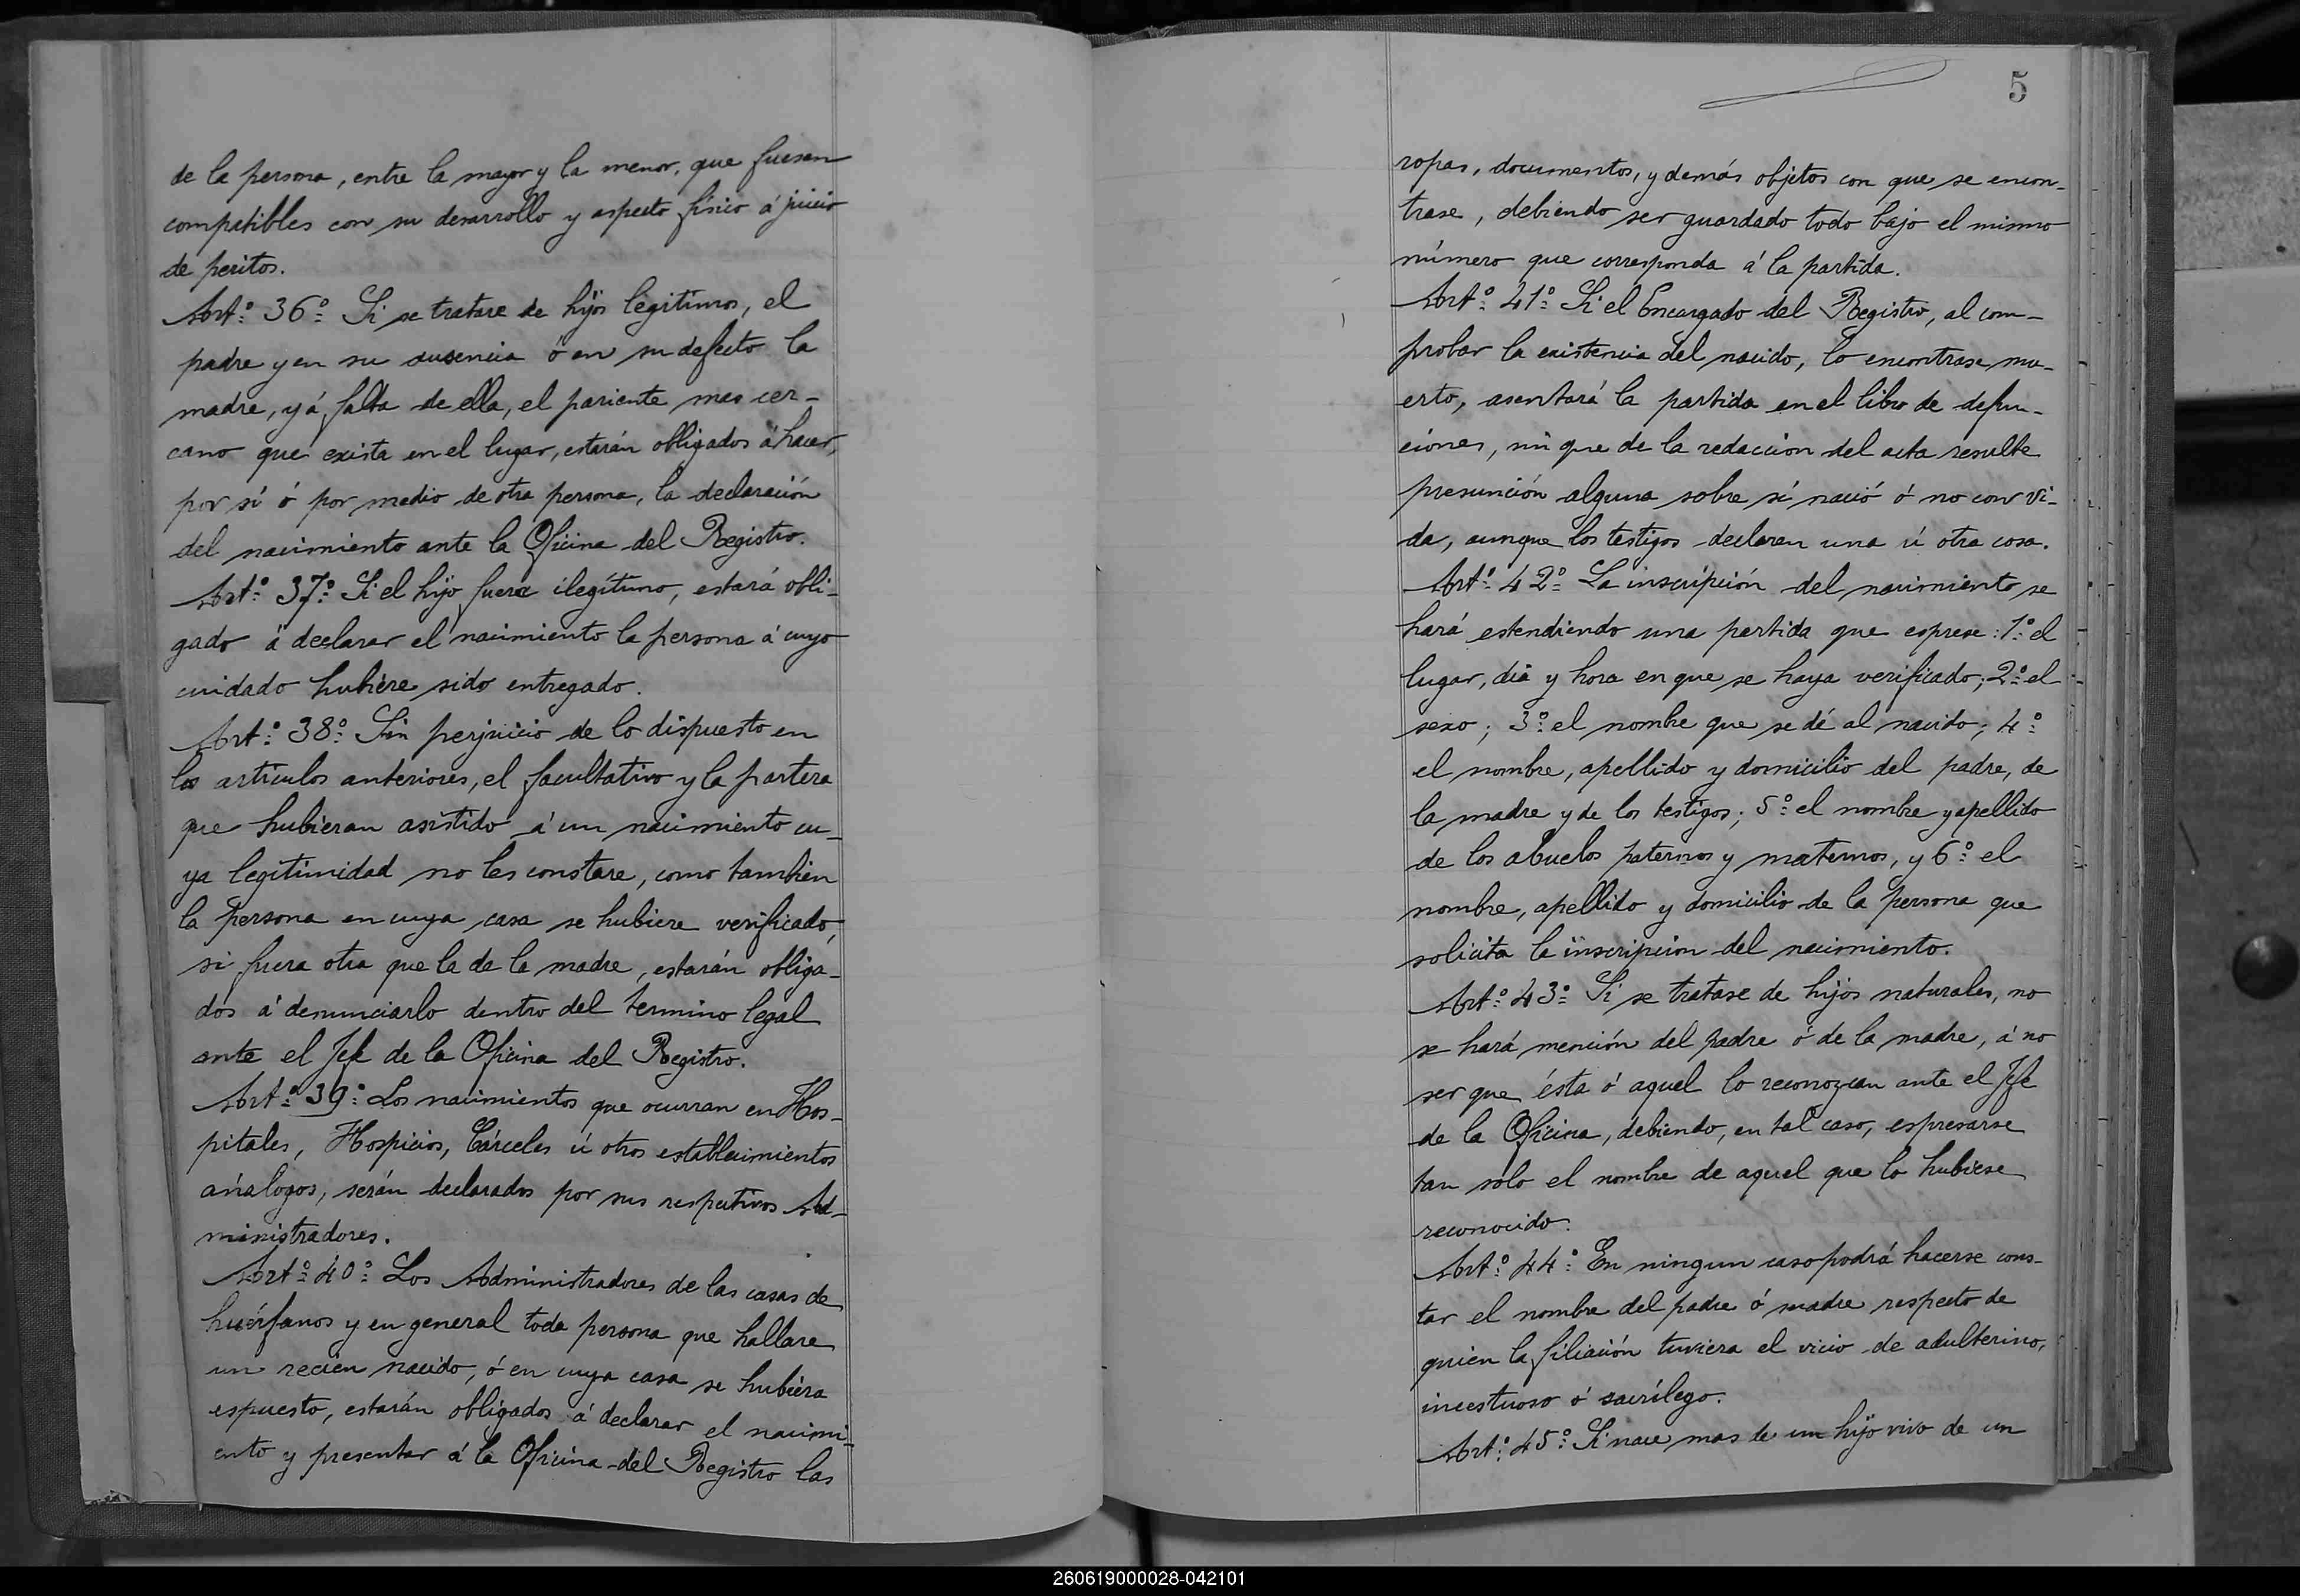 de la persona, entre la mayor y la menor, que fuesen
compatibles con su desarrollo y aspecto físico á juicio
de peritos.
Art.º 36º Si se tratare de hijos legítimos, el
padre y en su ausencia ó en su defecto la
madre, y á falta de ella, el pariente mas cer-
cano que exista en el lugar, estarán obligados á hacer,
por sí ó por medio de otra persona, la declaración
del nacimiento ante la Oficina del Registro.
Art.º 37º Si el hijo fuera ilegítimo, estará obli-
gado á declarar el nacimiento la persona á cuyo
cuidado hubiere sido entregado.
Art.º 38º Sin perjuicio de lo dispuesto en
los artículos anteriores, el facultativo y la partera
que hubieran asistido á un nacimiento cu-
ya legitimidad no les constare, como tambien
la persona en cuya casa se hubiere verificado,
si fuera otra que la de la madre, estarán obliga-
dos á denunciarlo dentro del termino legal
ante el Jefe de la Oficina del Registro.
Art.º 39º Los nacimientos que ocurran en Hos-
pitales, Hospicios, Cárceles ú otros establecimientos
análogos, serán declarados por sus respectivos Ad-
ministradores.
Art.º 40º Los Administradores de las casas de
huérfanos y en general toda persona que hallare
un recien nacido, ó en cuya casa se hubiera
espuesto, estarán obligados á declarar el nacimi-
ento y presentar á la Oficina del Registro las
5
ropas, documentos, y demás objetos con que se encon-
trase, debiendo ser guardado todo bajo el mismo
número que corresponda á la partida.
Art.º 41º Si el Encargado del Registro, al com-
probar la existencia del nacido, lo encontrase mu-
erto, asentará la partida en el libro de defun-
ciones, sin que de la redaccion del acta resulte
presunción alguna sobre sí nació ó no con vi-
da, aunque los testigos declaren una ú otra cosa.
Art.º 42º La inscripción del nacimiento se
hará estendiendo una partida que esprese: 1º el
lugar, día y hora en que se haya verificado; 2º el
sexo; 3º el nombre que se dé al nacido; 4º
el nombre, apellido y domicilio del padre, de
la madre y de los testigos; 5º el nombre y apellido
de los abuelos paternos y maternos, y 6º el
nombre, apellido y domicilio de la persona que
solicita la inscripcion del nacimiento.
Art.º 43º Si se tratase de hijos naturales, no
se hará mención del padre ó de la madre, á no
ser que ésta ó aquel lo reconozcan ante el Jefe
de la Oficina, debiendo, en tal caso, espresarse
tan solo el nombre de aquel que lo hubiese
reconocido.
Art.º 44º En ningun caso podrá hacerse cons-
tar el nombre del padre ó madre respecto de
quien la filiación tuviera el vicio de adulterino,
incestuoso ó sacrílego.
Art.º 45º Si nace mas de un hijo vivo de un
260619000028-042101